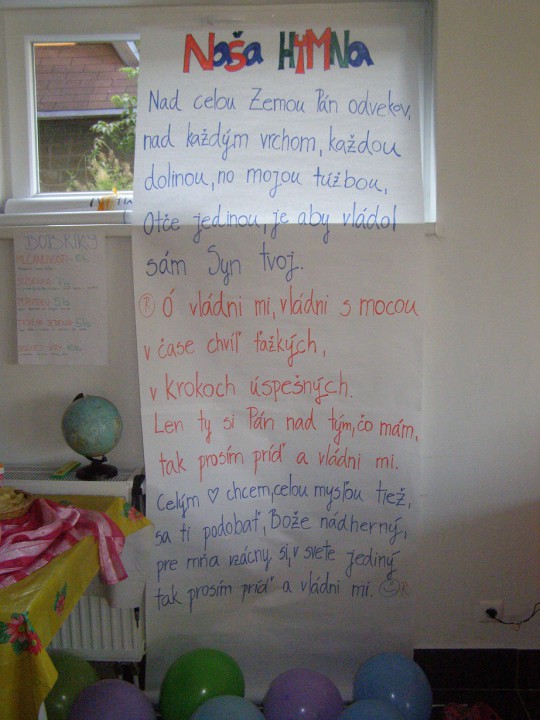 Naša HYMNa
Nad celou Zemou Pán odvekov,
nad každým vrchom, každou
dolinou, no mojou túžbou,
Otče jedinou, je aby vládol
sám Syn tvoj.
Ⓡ Ó vládni mi, vládni s mocou
v čase chvíľ ťažkých,
v krokoch úspešných.
Len ty si Pán nad tým, čo mám,
tak prosím príď a vládni mi.
Celým ♡ chcem, celou mysľou tiež,
sa ti podobať, Bože nádherný,
pre mňa vzácny si, v svete jediný
tak prosím príď a vládni mi. ☺ R
BOBRÍKY